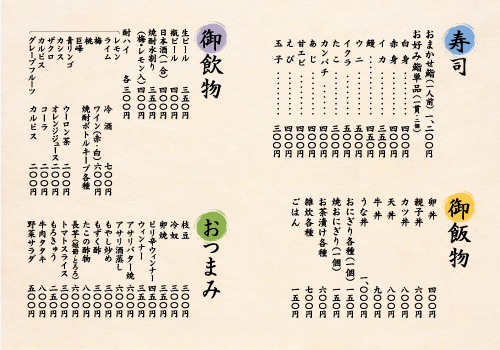 寿司
おまかせ鮨(一人前) 一、二〇〇円
お好み鮨単品(一貫・二個)
白身 四〇〇円
赤身 四〇〇円
イカ 三〇〇円
鰻 四〇〇円
イクラ 五〇〇円
ウニ 五〇〇円
たこ 四〇〇円
カンパチ 四〇〇円
あじ 四〇〇円
甘エビ 四〇〇円
えび 四〇〇円
玉子 三〇〇円
御飲物
生ビール 三五〇円
瓶ビール 五〇〇円
日本酒(一合) 四〇〇円
焼酎水割り 三五〇円
(梅・レモン入) 四〇〇円
酎ハイ 各 三〇〇円
レモン
ライム
梅
桃
巨峰
青リンゴ
カシス
ザクロ
カルピス
グレープフルーツ
冷酒 七〇〇円
ワイン(赤・白) 六〇〇円
焼酎ボトルキープ各種
ウーロン茶 二〇〇円
オレンジジュース 二〇〇円
コーラ 二〇〇円
カルピス 二〇〇円
御飯物
卵丼 四〇〇円
親子丼
カツ丼
天丼 八〇〇円
牛丼
うな丼 一、〇〇〇円
おにぎり各種(一個) 一五〇円
焼おにぎり(一個)
お茶漬け各種
雑炊各種
ごはん 一五〇円
おつまみ
枝豆 三〇〇円
冷奴
卵焼
ウィンナー
ピリ辛ウィンナー
アサリバター焼
アサリ酒蒸し
もやし炒め
もずく酢
たこの酢物
長芋(短冊・とろろ)
トマトスライス
もろきゅう
牛肉タタキ
野菜サラダ 五〇〇円